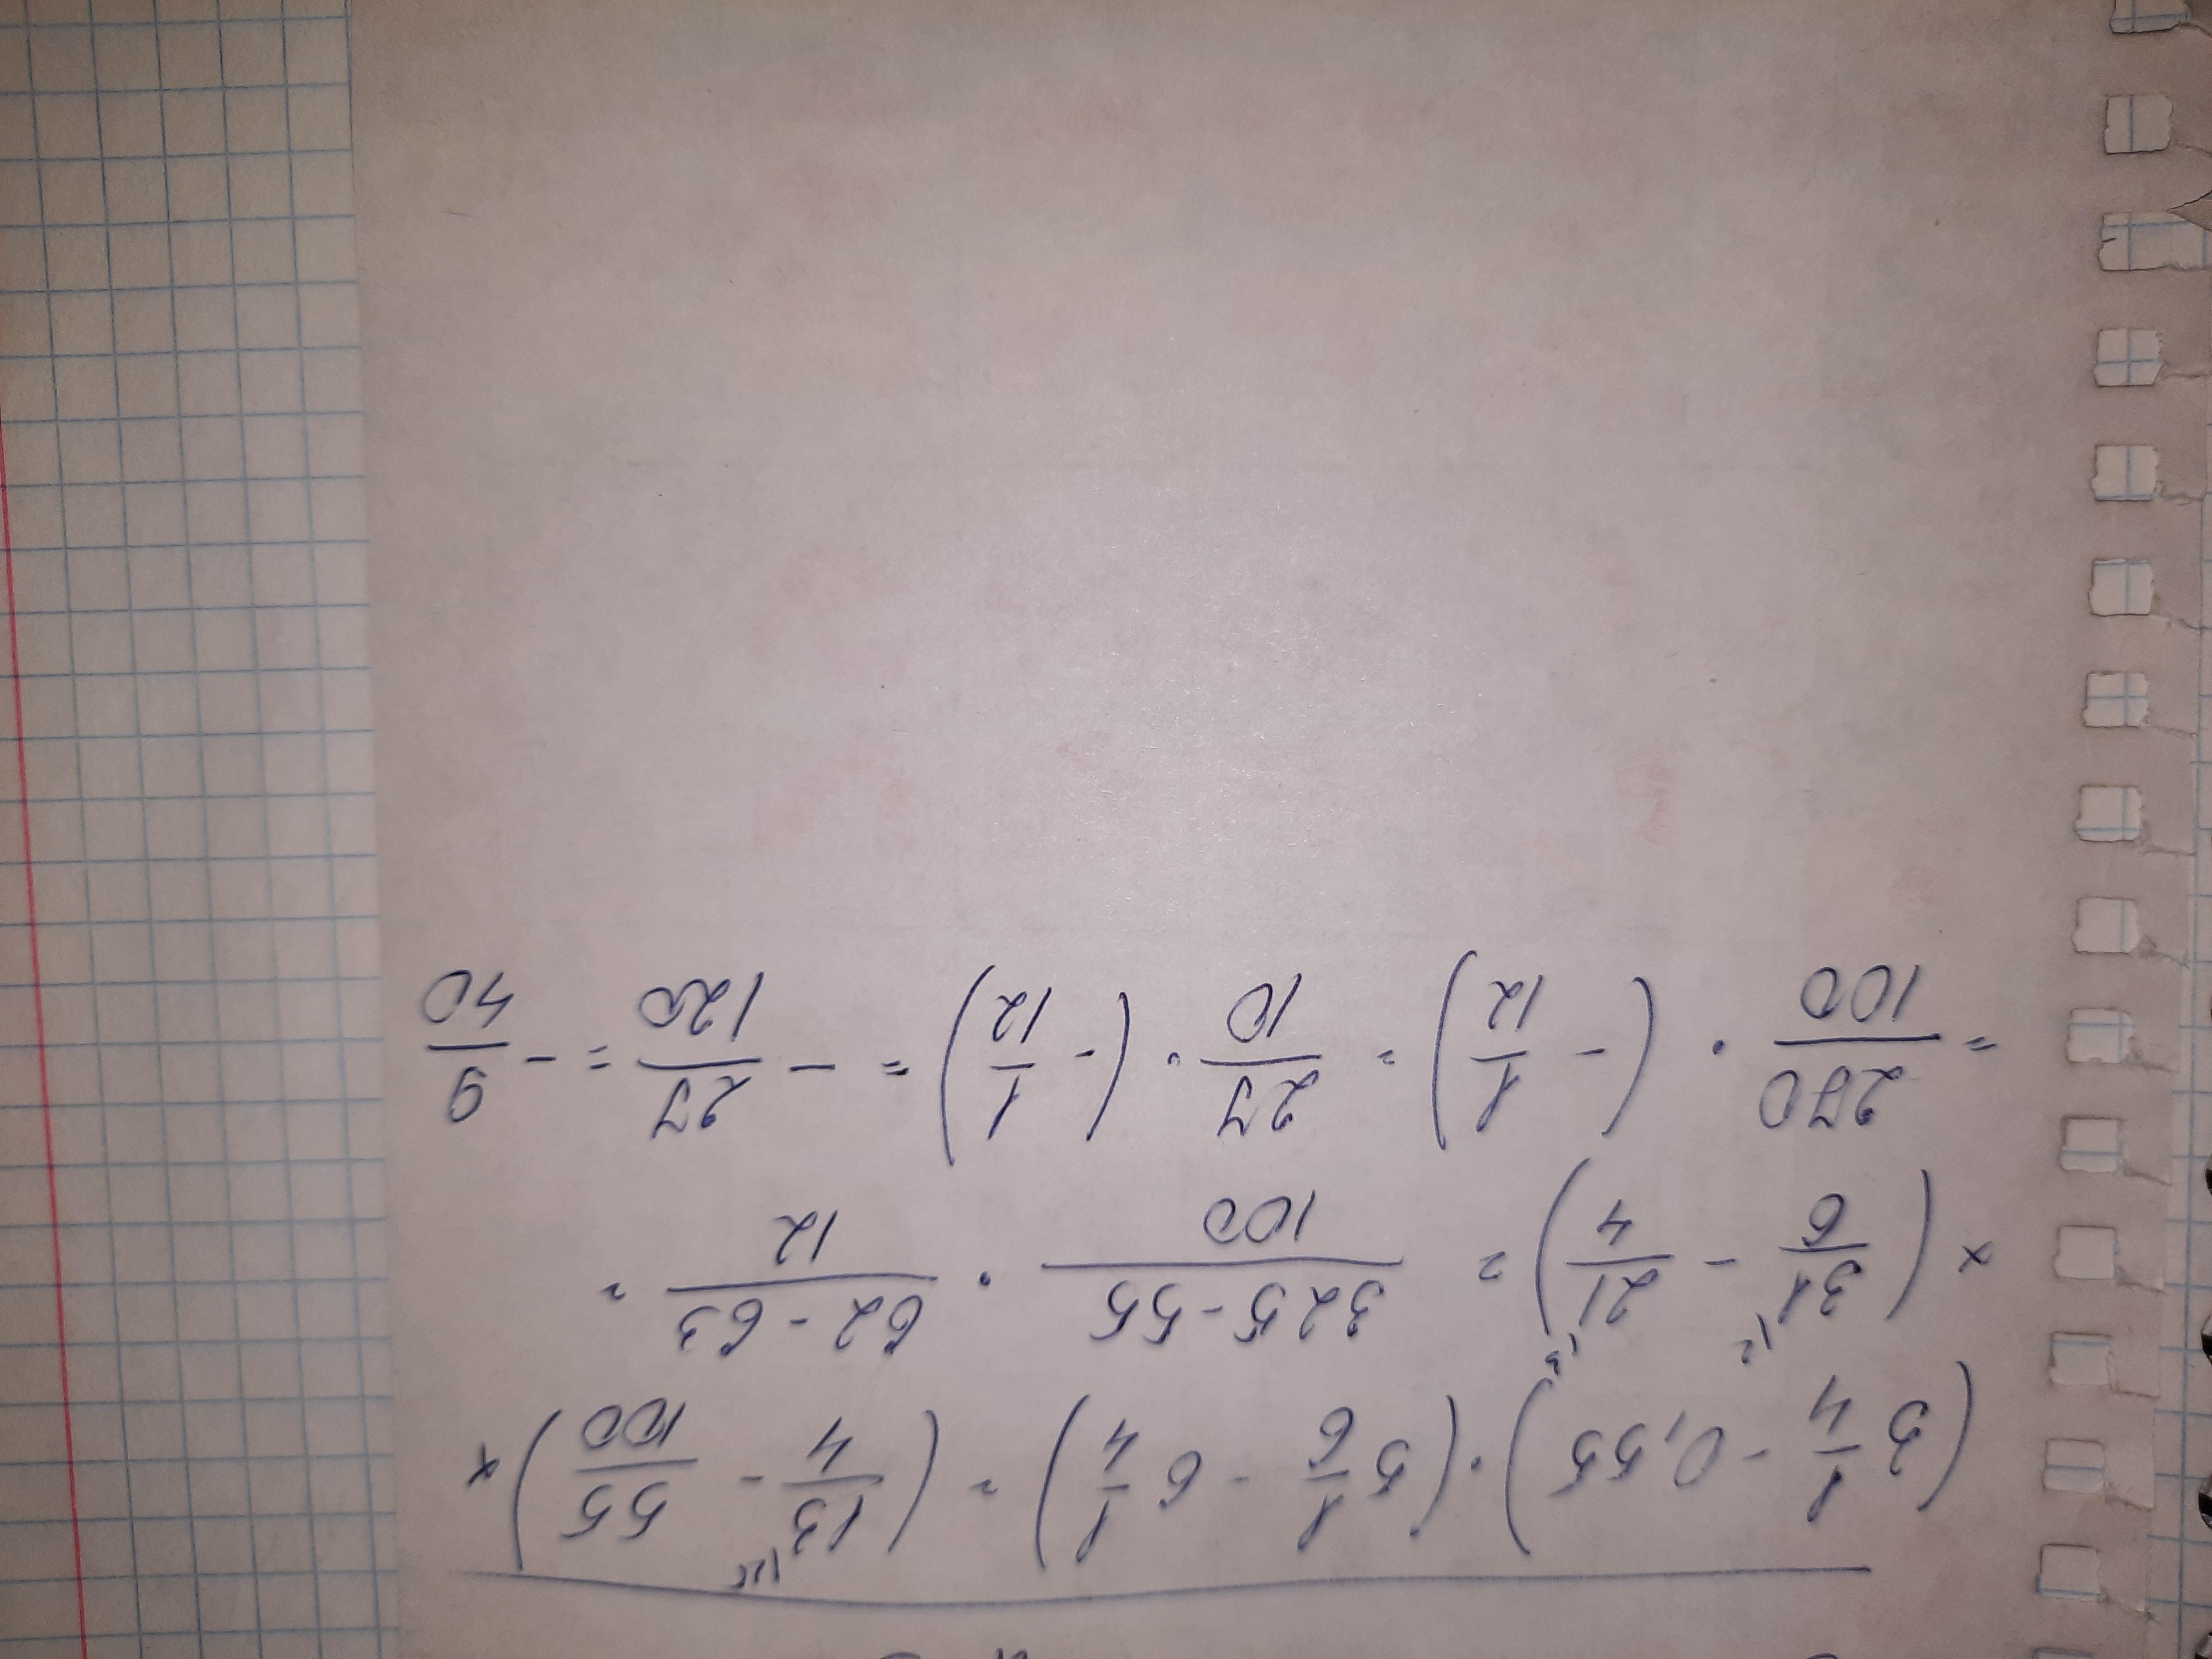 (3 1/4 - 0,55) · (5 1/6 - 6 1/4) = (13/4 \25 - 55/100) ×
× (31/6 \2 - 21/4 \3) = 325-55/100 · 62-63/12 =
= 270/100 · (- 1/12) = 27/10 · (- 1/12) = - 27/120 = - 9/40